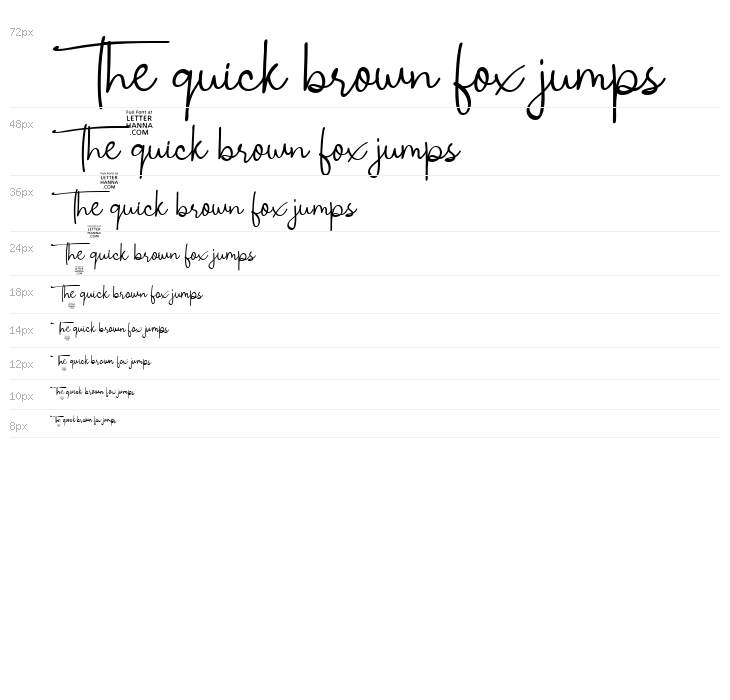 72px
The quick brown fox jumps
Full Font at
LETTER
HANNA
.COM
48px
The quick brown fox jumps
Full Font at
LETTER
HANNA
.COM
36px
The quick brown fox jumps
LETTER
HANNA
.COM
24px
The quick brown fox jumps
18px
The quick brown fox jumps
14px
The quick brown fox jumps
12px
The quick brown fox jumps
10px
The quick brown fox jumps
8px
The quick brown fox jumps